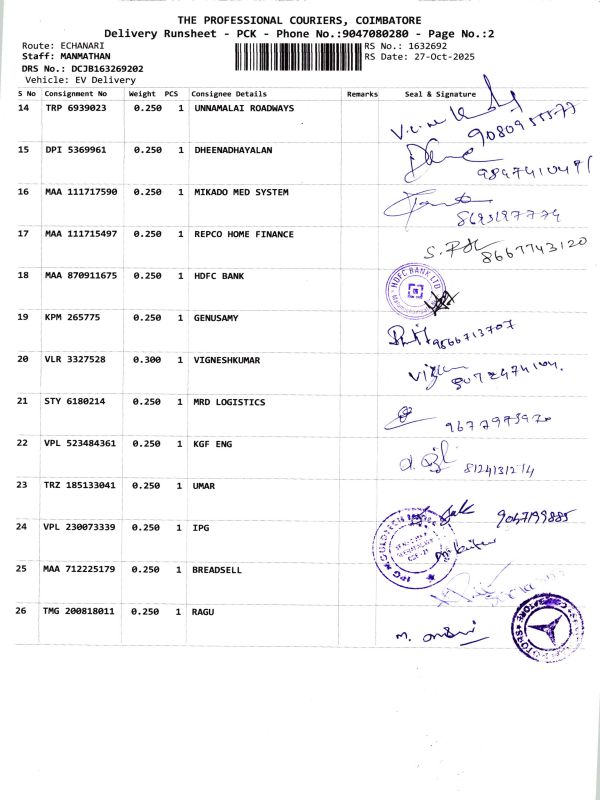 THE PROFESSIONAL COURIERS, COIMBATORE
Delivery Runsheet - PCK - Phone No.:9047080280 - Page No.:2
Route: ECHANARI RS No.: 1632692
Staff: MANMATHAN RS Date: 27-Oct-2025
DRS No.: DCJB163269202
Vehicle: EV Delivery
S No Consignment No Weight PCS Consignee Details Remarks Seal & Signature
14 TRP 6939023 0.250 1 UNNAMALAI ROADWAYS
15 DPI 5369961 0.250 1 DHEENADHAYALAN
16 MAA 111717590 0.250 1 MIKADO MED SYSTEM
17 MAA 111715497 0.250 1 REPCO HOME FINANCE 8667743120
18 MAA 870911675 0.250 1 HDFC BANK HDFC BANK LTD
19 KPM 265775 0.250 1 GENUSAMY 9566713707
20 VLR 3327528 0.300 1 VIGNESHKUMAR
21 STY 6180214 0.250 1 MRD LOGISTICS
22 VPL 523484361 0.250 1 KGF ENG
23 TRZ 185133041 0.250 1 UMAR 9047199885
24 VPL 230073339 0.250 1 IPG
25 MAA 712225179 0.250 1 BREADSELL
26 TMG 200818011 0.250 1 RAGU